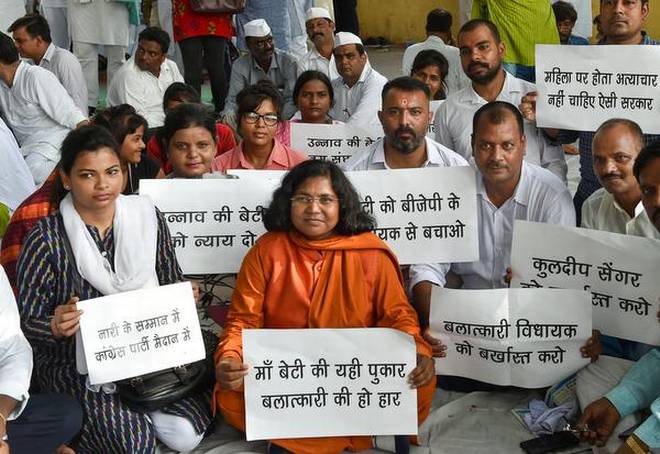 महिला पर होता अत्याचार
नहीं चाहिए ऐसी सरकार
उन्नाव की बेटी
उन्नाव की बेटी
को न्याय दो
टी को बीजेपी के
यक से बचाओ
कुलदीप सेंगर
को बर्खास्त करो
नारी के सम्मान में
कांग्रेस पार्टी मैदान में
बलात्कारी विधायक
को बर्खास्त करो
माँ बेटी की यही पुकार
बलात्कारी की हो हार